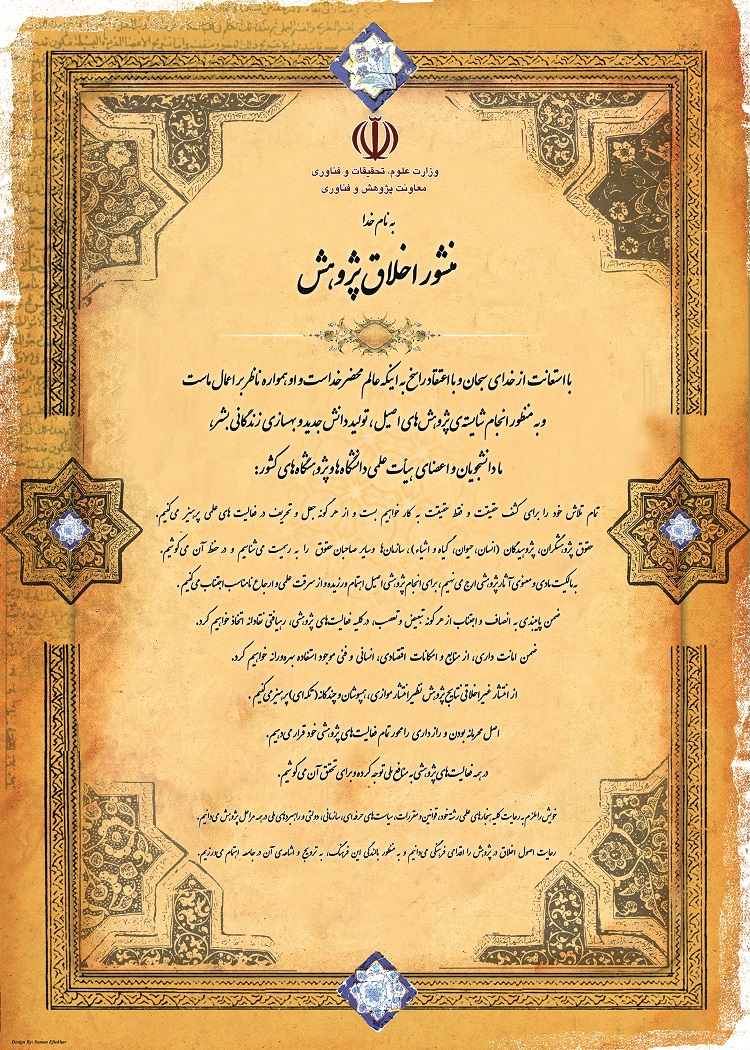 وزارت علوم، تحقیقات و فناوری
معاونت پژوهش و فناوری
به نام خدا
منشور اخلاق پژوهش
با استعانت از خدای سبحان و با اعتقاد راسخ به اینکه عالم محضر خداست و او همواره ناظر بر اعمال ماست
و به منظور انجام شایسته‌ی پژوهش‌های اصیل، تولید دانش جدید و بهسازی زندگانی بشر،
ما دانشجویان و اعضای هیأت علمی دانشگاه‌ها و پژوهشگاه‌های کشور:
تمام تلاش خود را برای کشف حقیقت و فقط حقیقت به کار خواهیم بست و از هر گونه جعل و تحریف در فعالیت های علمی پرهیز می‌کنیم.
حقوق پژوهشگران، پژوهیدگان (انسان، حیوان، گیاه و اشیاء)، سازمان‌ها و سایر صاحبان حقوق را به رسمیت می‌شناسیم و در حفظ آن می‌کوشیم.
به مالکیت مادی و معنوی آثار پژوهشی ارج می‌نهیم، برای انجام پژوهشی اصیل اهتمام ورزیده و از سرقت علمی و ارجاع نامناسب اجتناب می‌کنیم.
ضمن پایبندی به انصاف و اجتناب از هر گونه تبعیض و تعصب، در کلیه فعالیت‌های پژوهشی، رهیافتی نقادانه اتخاذ خواهیم کرد.
ضمن امانت داری، از منابع و امکانات اقتصادی، انسانی و فنی موجود استفاده بهره‌ورانه خواهیم کرد.
از انتشار غیراخلاقی نتایج پژوهش نظیر انتشار موازی، همپوشان و چندگانه (تکه‌ای) پرهیز می‌کنیم.
اصل محرمانه بودن و رازداری را محور تمام فعالیت‌های پژوهشی خود قرار می‌دهیم.
در همه فعالیت‌های پژوهشی به منافع ملی توجه کرده و برای تحقق آن می‌کوشیم.
خویش را ملزم به رعایت کلیه هنجارهای علمی رشته خود، قوانین و مقررات، سیاست‌های حرفه‌ای، سازمانی، دولتی و راهبردهای ملی در همه مراحل پژوهش می‌دانیم.
رعایت اصول اخلاق در پژوهش را اقدامی فرهنگی می‌دانیم و به منظور بالندگی این فرهنگ، به ترویج و اشاعه‌ی آن در جامعه اهتمام می‌ورزیم.
Design By: Saman Eftekhar